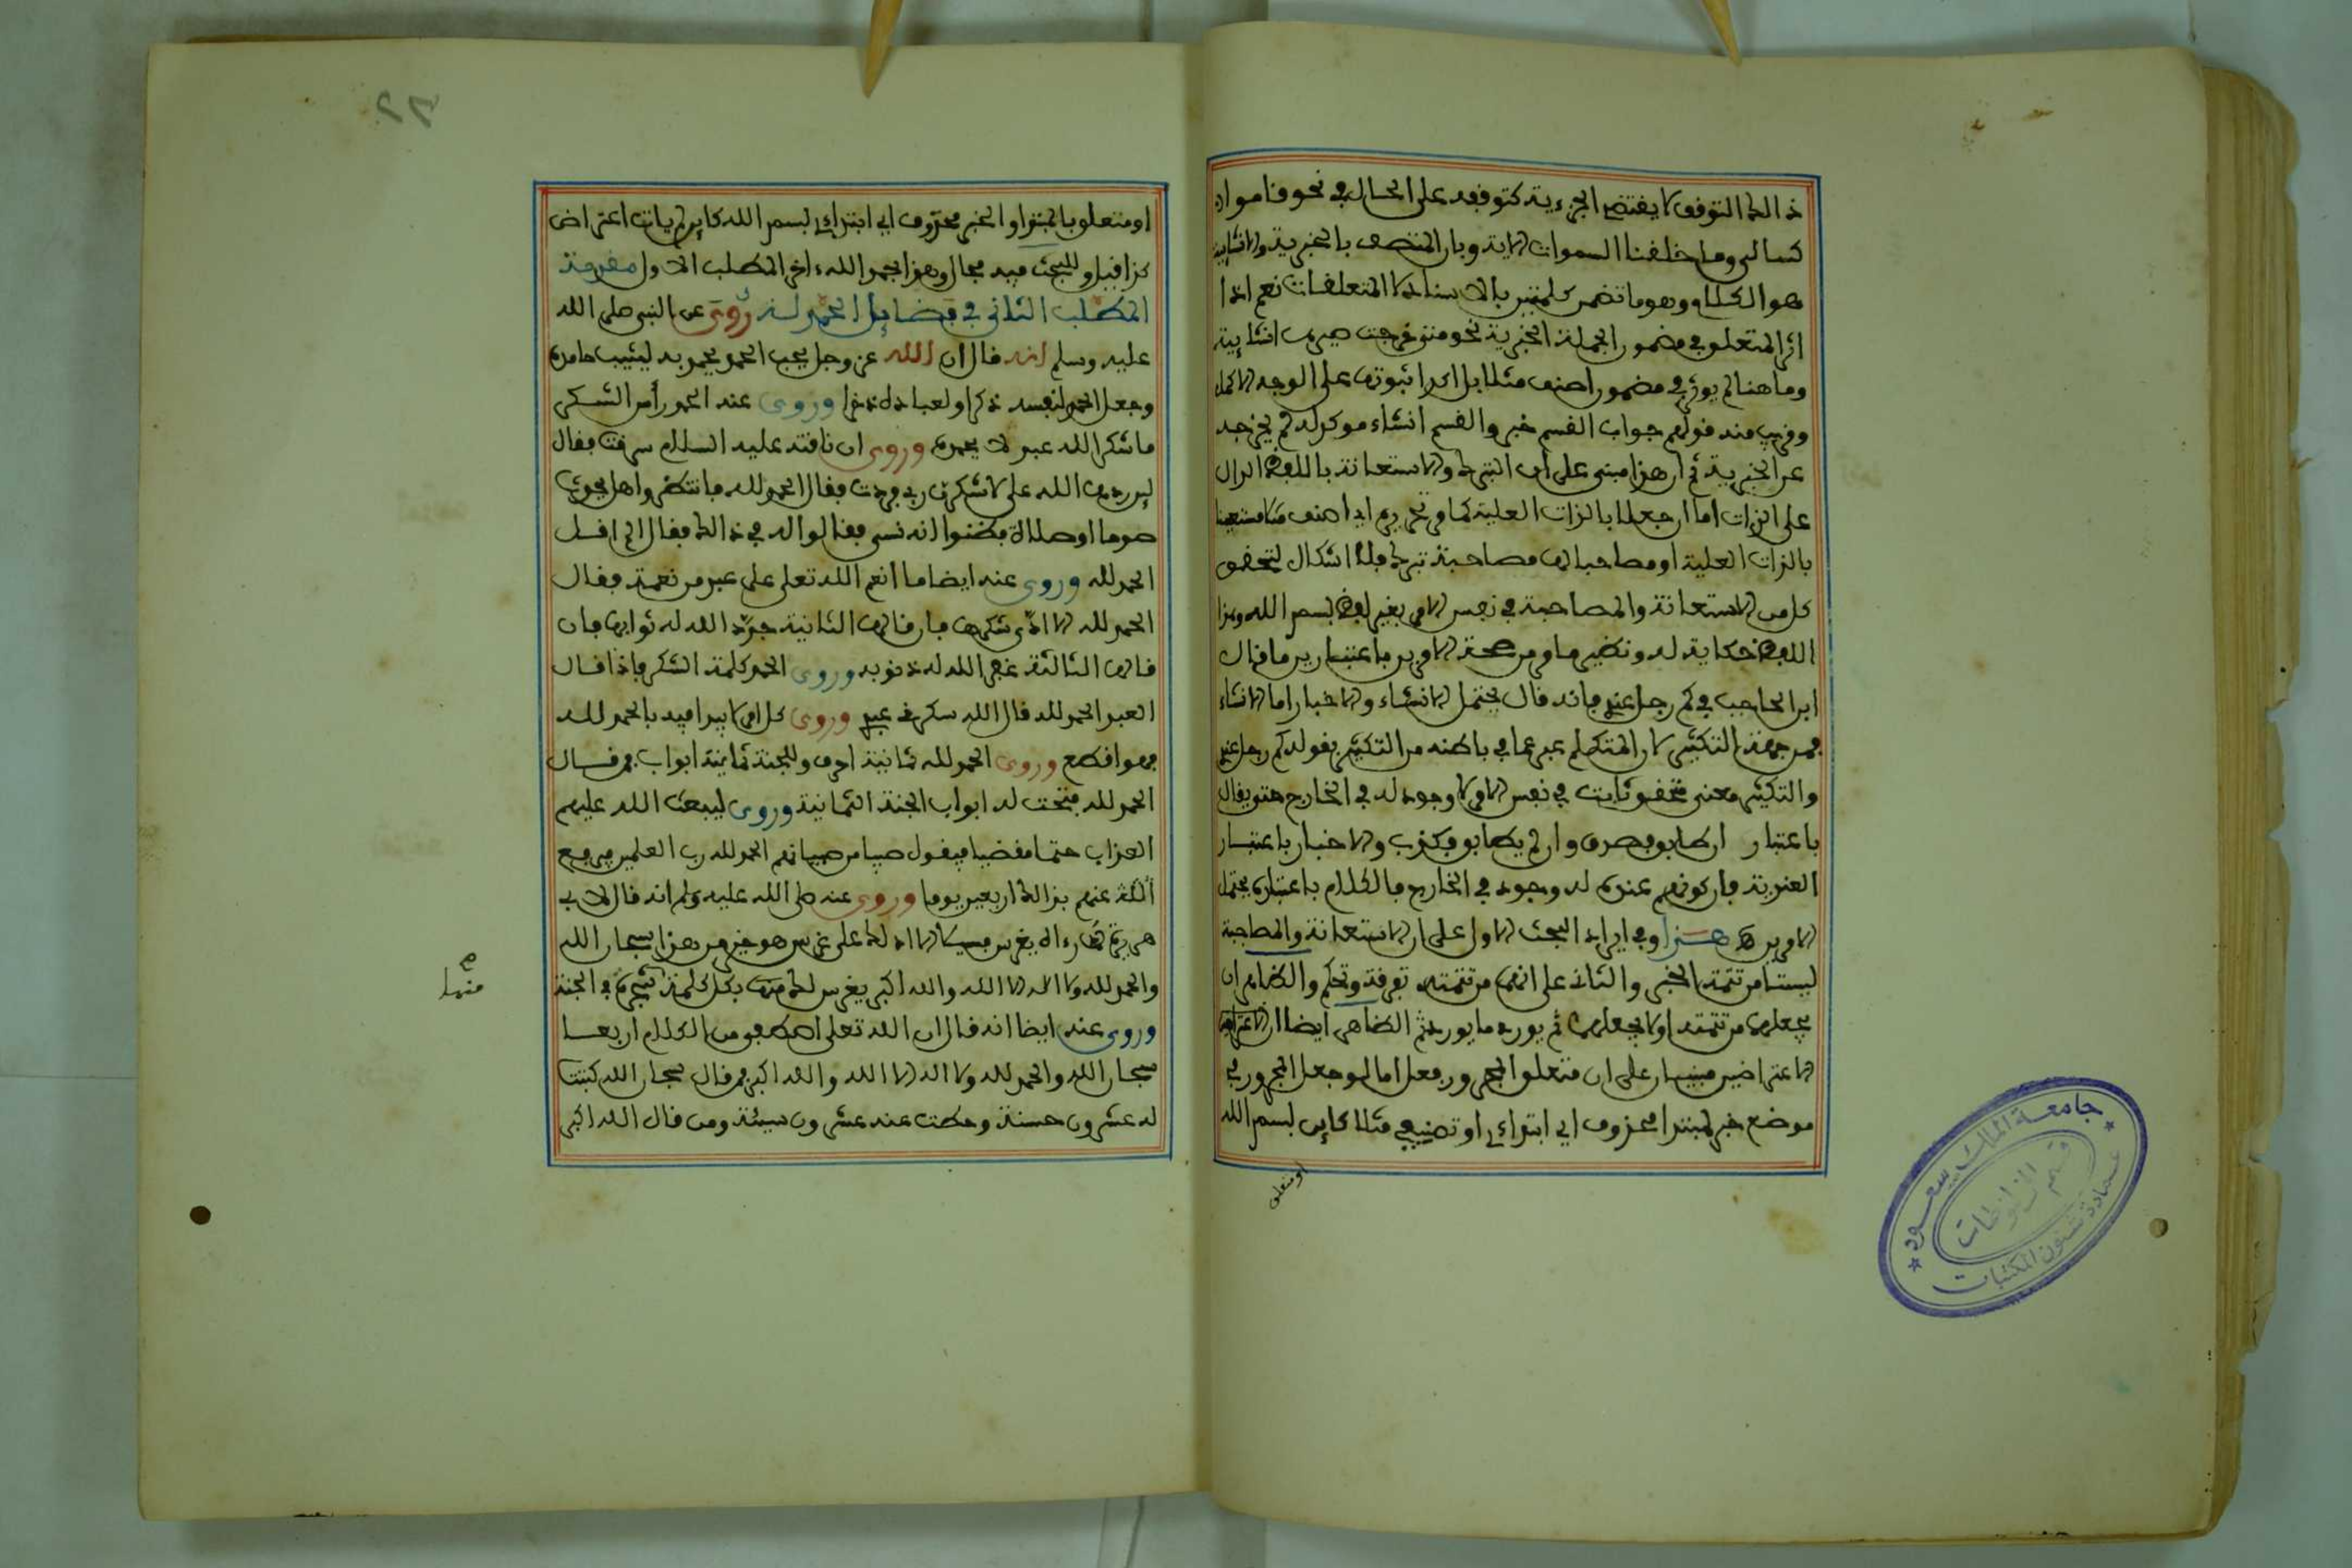 ذالك التوقف لا يقتضي الجزءية كتوقفه على الحال في نحو قاموا
كسالى وما خلقنا السموات الاية وبان المتصف بالخبرية والانشاية
هو الكلام وهو ما تضمن كلمتين بالاسناد لا المتعلقات نعم اذا
اثر المتعلق في مضمون الجملة الخبرية نحو متى خرجت صيرت انشايية
وما هنا لم يوثر في مضمون اصنف مثلا بل اكد ثبوته على الوجه الاكمل
وقريب منه قولهم جواب القسم خبر والقسم انشاء موكد له لم يخرجه
عن الخبرية ثم ان هذا مبني على ان التبرك والاستعانة باللفظ الدال
على الذات اما ان جعلا بالذات العلية كما في تحريم اي اصنف مستعينا
بالذات العلية او مصاحبا لها مصاحبة تبرك فلا اشكال لتحقق
كل من الاستعانة والمصاحبة في نفس الامر بغير لفظ بسم الله وهذا
اللفظ حكاية له ونظير ما مر من صحة الامرين باعتبارين ما قال
ابن الحاجب في كم رجل عندي فانه قال يحتمل الانشاء والاخبار اما الانشاء
فمن جهة التكثير لان المتكلم عبر عما في باطنه من التكثير بقوله كم رجل عندي
والتكثير معنى محقق ثابت في نفس الامر لا وجود له في الخارج حتى يقال
باعتبار ان طابق فصدق وان لم يطابق فكذب والاخبار باعتبار
العندية فان كونهم عنده له وجود في الخارج فالكلام باعتباره يحتمل
الامرين هذا وفي ايراد البحث الاول على ان الاستعانة والمصاحبة
ليستا من تتمة الخبر والثاني على انهما من تتمته تفرقة وتحكم والظاهر ان
يجعلهما من تتمته اولا يجعلهما ثم يورد ما يورد ثم الظاهر ايضا ان الاعتراض
الاعتراضين مبنيان على ان متعلق المجرور فعل اما لو جعل المجرور في
موضع خبر لمبتدا محذوف اي ابتداءي او تصنيفي مثلا كاين بسم الله
او متعلق
او متعلق بالمبتدا والخبر محذوف اي ابتداءي بسم الله كاين لم يات اعتراض
كذا قيل وللبحث فيه مجال وهذا بحمد الله ءاخر المطلب الاول مقدمة
المطلب الثاني في فضايل الحمد لله روي عن النبي صلى الله
عليه وسلم انه قال ان الله عز وجل يحب الحمد يحمد به ليثيب حامده
وجعل الحمد لنفسه ذكرا ولعباده ذخرا وروي عنه الحمد رأس الشكر
ما شكر الله عبد لا يحمده وروي ان ناقته عليه السلام سرقت فقال
لين ردها الله علي لاشكرن ربي فردت فقال الحمد لله فانتظروا هل يحدث
صوما او صلاة فظنوا انه نسي فقالوا له في ذالك فقال الم اقل
الحمد لله وروي عنه ايضا ما انعم الله تعلى على عبد من نعمة فقال
الحمد لله الا ادى شكرها فان قالها الثانية جدد الله له ثوابها فان
قالها الثالثة غفر الله له ذنوبه وروي الحمد كلمة الشكر فاذا قال
العبد الحمد لله قال الله شكرني عبدي وروي كل امر لا يبدا فيه بالحمد لله
فهو اقطع وروي الحمد لله ثمانية احرف وللجنة ثمانية ابواب فمن قال
الحمد لله فتحت له ابواب الجنة الثمانية وروي ليبعث الله عليهم
العذاب حتما مقضيا فيقول صبي من صبيانهم الحمد لله رب العلمين فيرفع
الله عنهم بذالك اربعين يوما وروي عنه صلى الله عليه وسلم انه قال لابي
هريرة وراءه يغرس فسيلا الا ادلك على غرس هو خير من هذا سبحان الله
والحمد لله ولا اله الا الله والله اكبر يغرس لك بكل كلمة شجرة في الجنة
منها
وروي عنه ايضا انه قال ان الله تعلى اصطفى من الكلام اربعا
سبحان الله والحمد لله ولا اله الا الله والله اكبر فمن قال سبحان الله كتبت
له عشرون حسنة وحطت عنه عشرون سيئة ومن قال الله اكبر
جامعة الملك سعود
قسم المخطوطات
عمادة شئون المكتبات